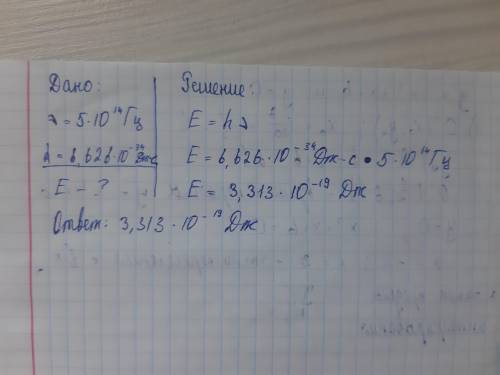 Дано:
ν = 5·10¹⁴ Гц
h = 6,626·10⁻³⁴ Дж·с
E - ?
Решение:
E = hν
E = 6,626·10⁻³⁴ Дж·с • 5·10¹⁴ Гц
E = 3,313·10⁻¹⁹ Дж
Ответ: 3,313·10⁻¹⁹ Дж